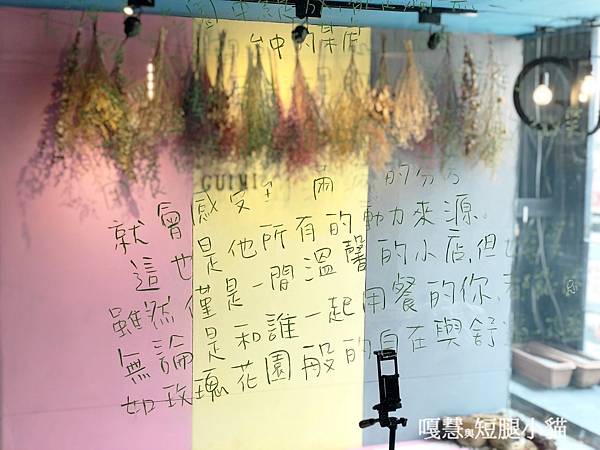 台中的某店
GUIMI
就會感受到
的分
這也是他所有的動力來源
雖然僅是一間溫馨的小店,但
無論是和誰一起用餐的你,
如玫瑰花園般的自在與舒
嘎慧與短腿小貓